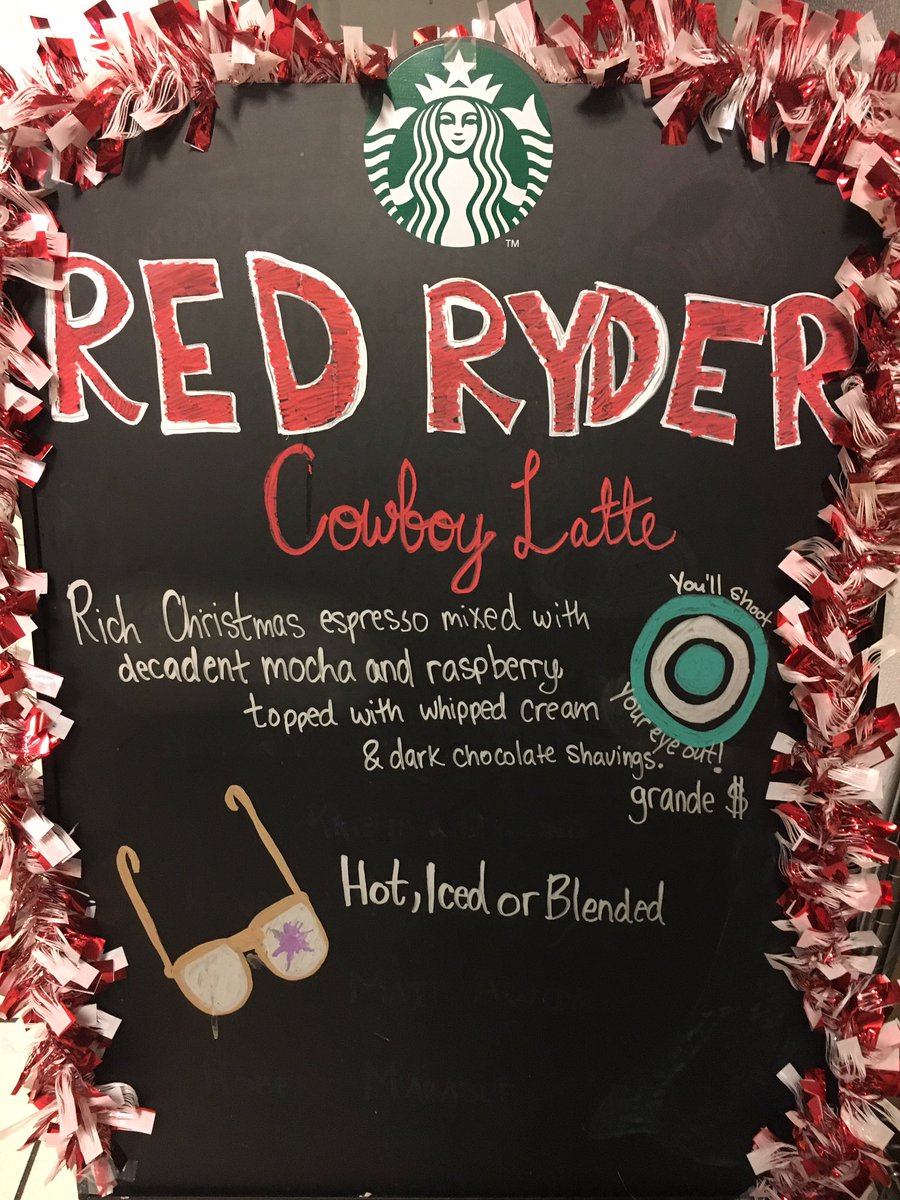 TM
RED RYDER
Cowboy Latte
You'll shoot
Your eye out!
Rich Christmas espresso mixed with
decadent mocha and raspberry,
topped with whipped cream
& dark chocolate shavings.
grande $
Hot, Iced or Blended